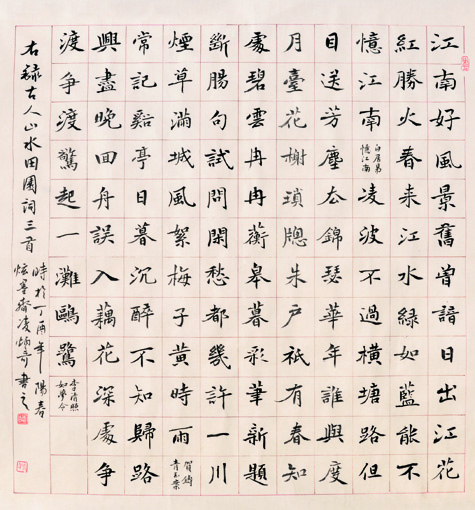 江南好風景舊曾諳日出江花
紅勝火春來江水綠如藍能不
憶江南
白居易
憶江南
凌波不過橫塘路但
目送芳塵去錦瑟華年誰與度
月臺花榭瑣牕朱戶祇有春知
處碧雲冉冉蘅皋暮彩筆新題
斷腸句試問閑愁都幾許一川
煙草滿城風絮梅子黃時雨
賀鑄
青玉案
常記谿亭日暮沉醉不知歸路
興盡晚回舟誤入藕花深處爭
渡爭渡驚起一灘鷗鷺
李清照
如夢令
右錄古人山水田園詞三首
時於丁酉年陽春
炫墨齋凌炳奇書之